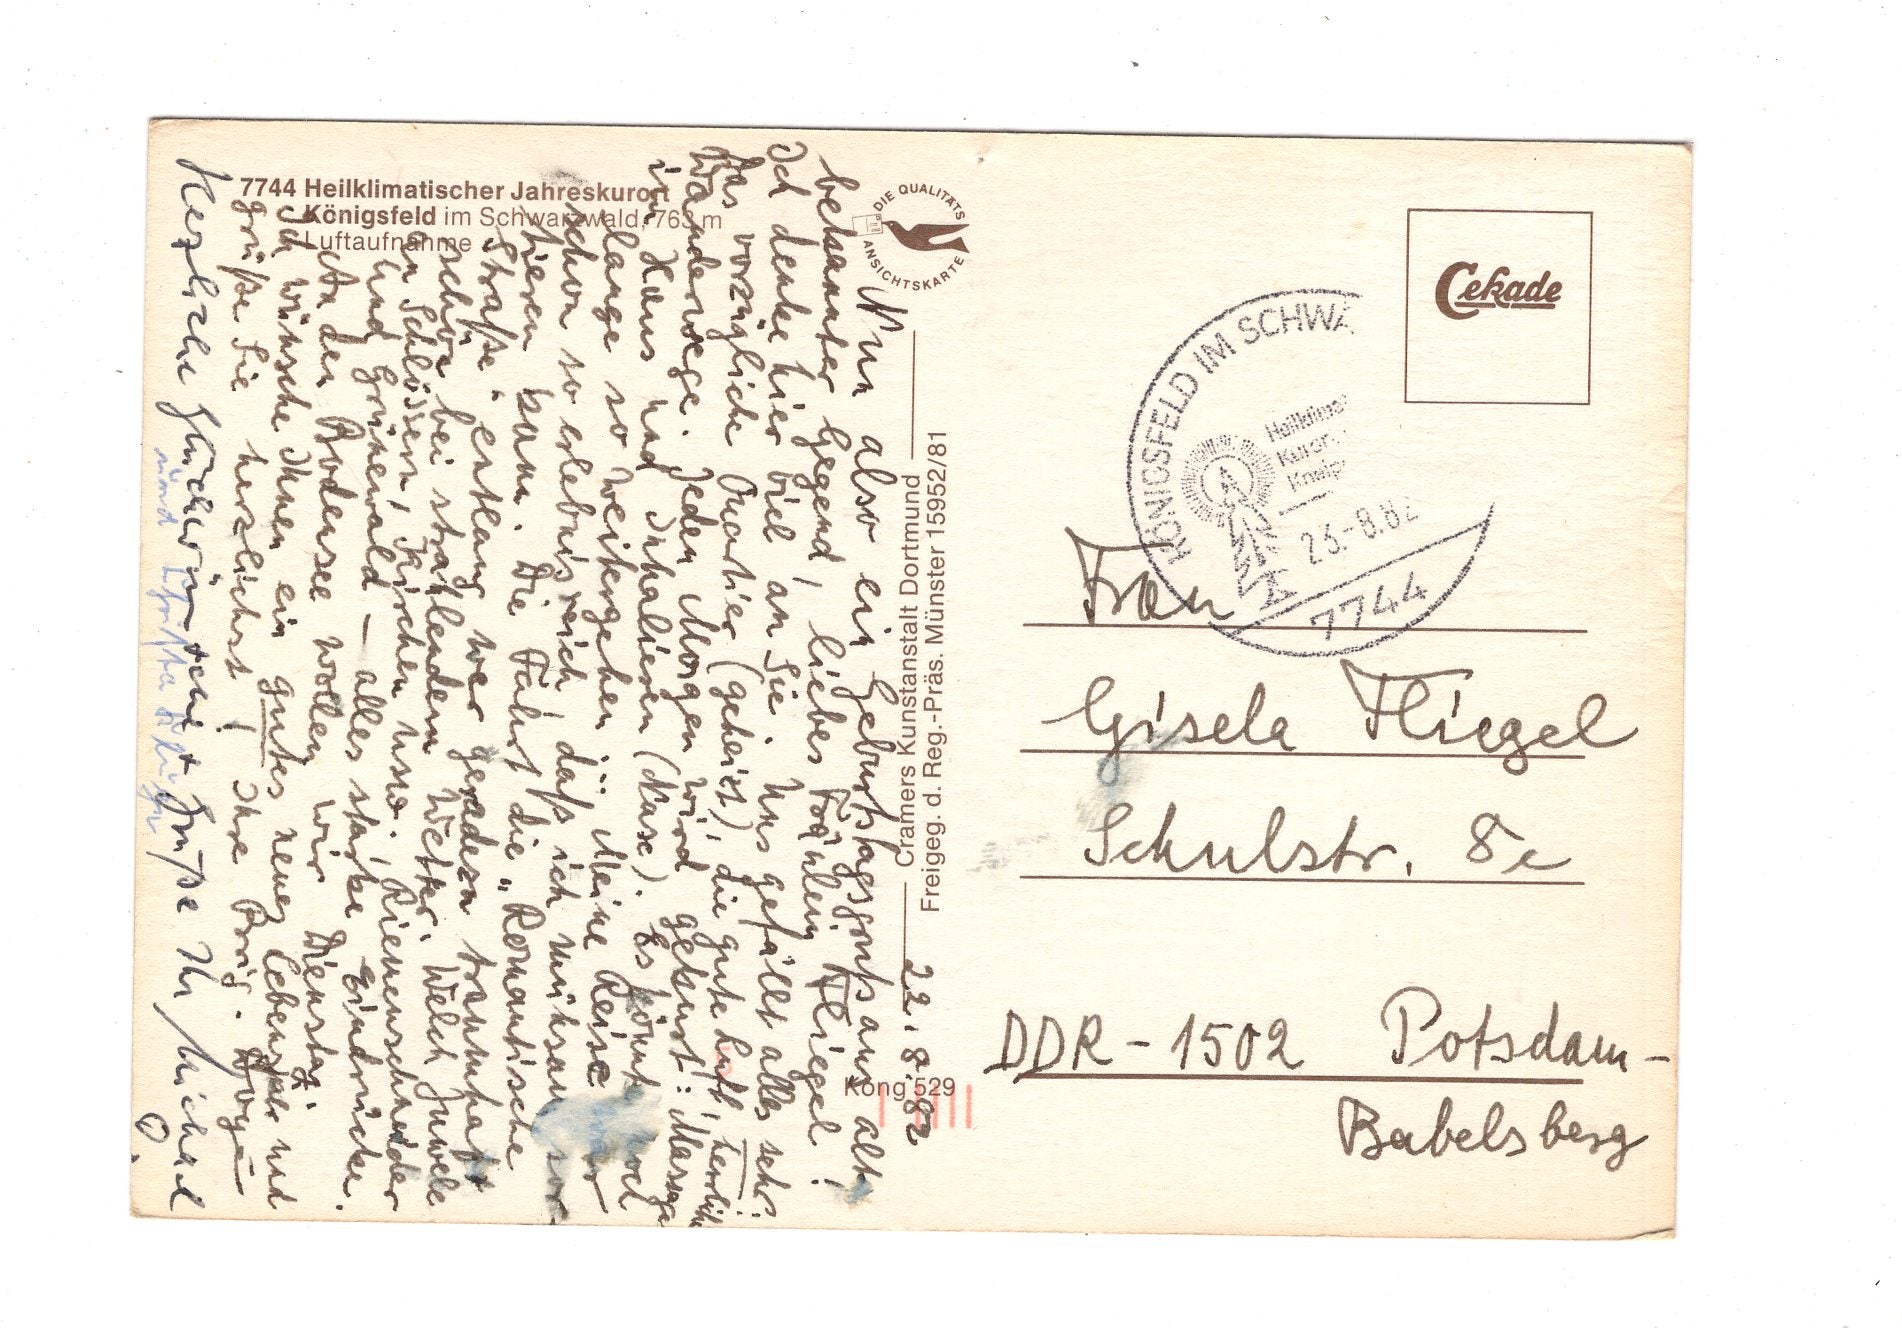 7744 Heilklimatischer Jahreskurort
Königsfeld im Schwarzwald, 763 m
Luftaufnahme
DIE QUALITÄTS
ANSICHTSKARTE
Cramers Kunstanstalt Dortmund
Freigeg. d. Reg.-Präs. Münster 15952/81
Köng 529
Cekade
KÖNIGSFELD IM SCHWA
Heilklima
Kuror
Kneip
23.-8.82
7744
22.8.82
Nun also ein Geburtstagsgruß aus alt-
bekannter Gegend, liebes Fräulein Fliegel!
Ich denke hier viel an Sie. Uns gefällt alles sehr:
Das vorzügliche Quartier (geheizt), die gute Luft, herrliche
Wanderwege. Jeden Morgen wird gekurt: Massage
im Haus und Inhalieren (Nase). Es könnte noch
lange so weitergehen ... Meine Reise war
schon so erlebnisreich, daß ich mühsam sor-
tieren kann. Die Fahrt die "Romantische
Straße" entlang war geradezu traumhaft
schön bei strahlendem Wetter. Welch Juwele
an Schlössern, Kirchen usw. Riemenschneider
und Grünewald – alles starke Eindrücke.
An den Bodensee wollen wir Dienstag.
Ich wünsche Ihnen ein gutes neues Lebensjahr und
grüße Sie herzlichst! Ihre Brig.
Herzliche Glückwünsche und Grüße Ihr Michael
Frau
Gisela Fliegel
Schulstr. 8c
DDR-1502 Potsdam-
Babelsberg